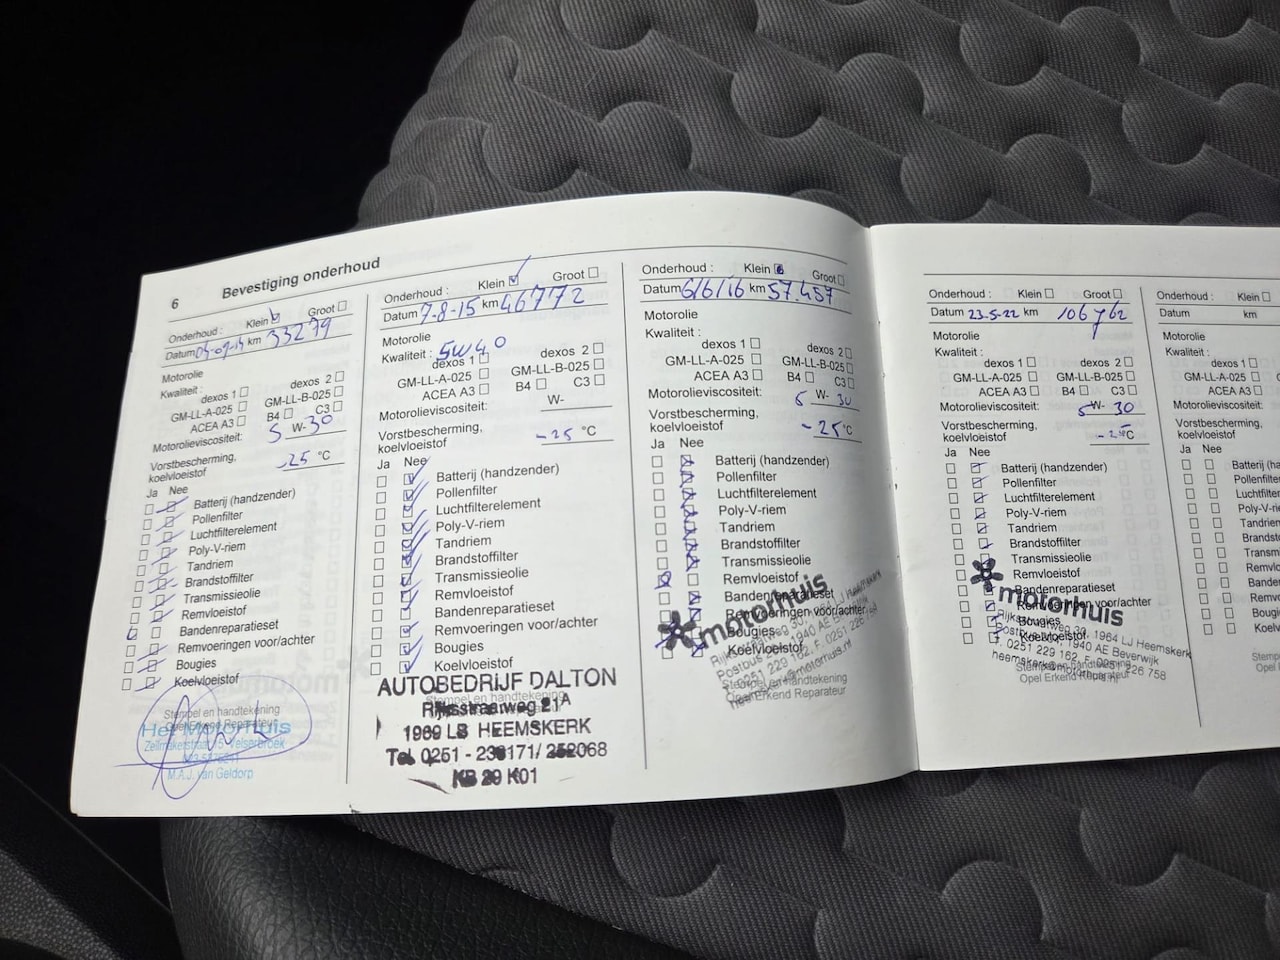 6 Bevestiging onderhoud
Onderhoud : Klein Groot
Datum km 33279
Motorolie
Kwaliteit : dexos 1 dexos 2
GM-LL-A-025 GM-LL-B-025
ACEA A3 B4 C3
Motorolieviscositeit: 5 W- 30
Vorstbescherming,
koelvloeistof -25 °C
Ja Nee
Batterij (handzender)
Pollenfilter
Luchtfilterelement
Poly-V-riem
Tandriem
Brandstoffilter
Transmissieolie
Remvloeistof
Bandenreparatieset
Remvoeringen voor/achter
Bougies
Koelvloeistof
Stempel en handtekening
Opel Erkend Reparateur
Het Motorhuis
M.A.J. van Geldorp
Onderhoud : Klein Groot
Datum 7-8-15 km 46772
Motorolie
Kwaliteit : 5W40
dexos 1 dexos 2
GM-LL-A-025 GM-LL-B-025
ACEA A3 B4 C3
Motorolieviscositeit: W-
Vorstbescherming,
koelvloeistof -25 °C
Ja Nee
Batterij (handzender)
Pollenfilter
Luchtfilterelement
Poly-V-riem
Tandriem
Brandstoffilter
Transmissieolie
Remvloeistof
Bandenreparatieset
Remvoeringen voor/achter
Bougies
Koelvloeistof
Stempel en handtekening
AUTOBEDRIJF DALTON
Rijksstraatweg 21A
1969 LB HEEMSKERK
Tel. 0251 - 238171/ 252068
KB 29 K01
Onderhoud : Klein Groot
Datum 6/6/16 km 57.457
Motorolie
Kwaliteit :
dexos 1 dexos 2
GM-LL-A-025 GM-LL-B-025
ACEA A3 B4 C3
Motorolieviscositeit: 5 W- 30
Vorstbescherming,
koelvloeistof -25 °C
Ja Nee
Batterij (handzender)
Pollenfilter
Luchtfilterelement
Poly-V-riem
Tandriem
Brandstoffilter
Transmissieolie
Remvloeistof
Bandenreparatieset
Remvoeringen voor/achter
Bougies
Koelvloeistof
motorhuis
Postbus 1940 AE
Stempel en handtekening
Opel Erkend Reparateur
Onderhoud : Klein Groot
Datum 23.5-22 km 106762
Motorolie
Kwaliteit :
dexos 1 dexos 2
GM-LL-A-025 GM-LL-B-025
ACEA A3 B4 C3
Motorolieviscositeit: 5 W- 30
Vorstbescherming,
koelvloeistof °C
Ja Nee
Batterij (handzender)
Pollenfilter
Luchtfilterelement
Poly-V-riem
Tandriem
Brandstoffilter
Transmissieolie
Remvloeistof
Bandenreparatieset
Remvoeringen voor/achter
Bougies
Koelvloeistof
motorhuis
1964 LJ Heemskerk
1940 AE Beverwijk
T. 0251 229 162, F. 0251 226 758
Stempel en handtekening
Opel Erkend Reparateur
Onderhoud : Klein
Datum km
Motorolie
Kwaliteit :
dexos 1
GM-LL-A-025
ACEA A3
Motorolieviscositeit:
Vorstbescherming,
koelvloeistof
Ja Nee
Batterij (ha
Pollenfilter
Luchtfiltere
Poly-V-rie
Tandriem
Brandstof
Transmis
Remvloe
Bandenr
Remvoe
Bougies
Koelvlo
Stempel
Opel E